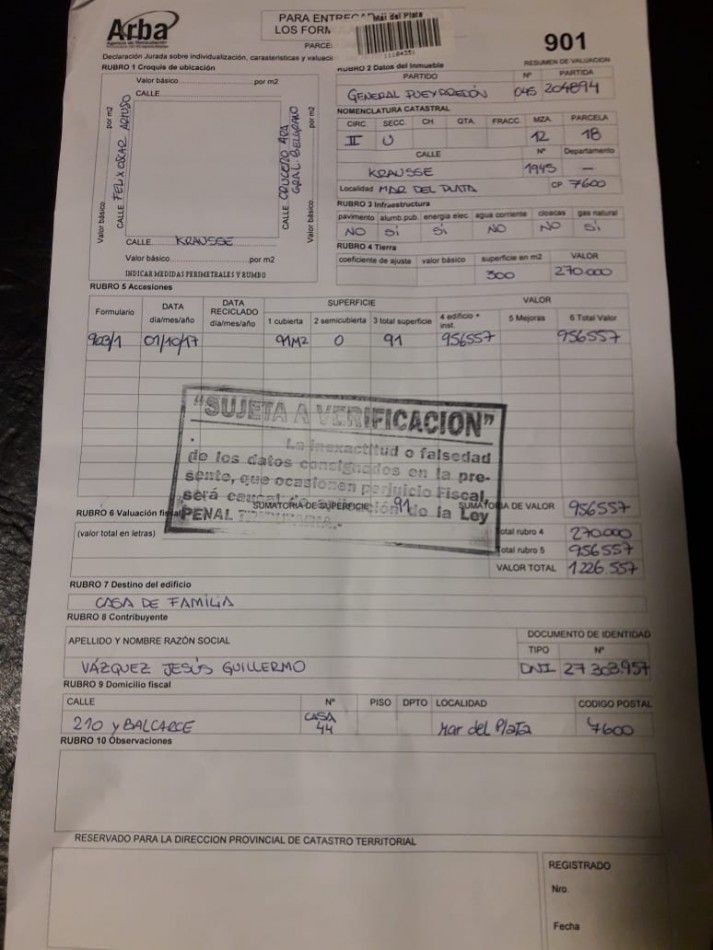 Arba
PARA ENTREGAR
LOS FORM
PARCE
Mar del Plata
901
Declaración Jurada sobre individualización, características y valuació
RESUMEN DE VALUACION
RUBRO 1 Croquis de ubicación
Valor básico por m2
CALLE
por m2
CALLE FELIX OSCAR ARTUSO
Valor básico
CALLE CRUCERO ARA
GRAL. BELGRANO
por m2
Valor básico
CALLE KRAUSSE
Valor básico por m2
INDICAR MEDIDAS PERIMETRALES Y RUMBO
RUBRO 2 Datos del Inmueble
PARTIDO Nº PARTIDA
GENERAL PUEYRREDÓN 045 204894
NOMENCLATURA CATASTRAL
CIRC. SECC CH QTA FRACC. MZA PARCELA
II U 12 18
CALLE Nº Departamento
KRAUSSE 1945 —
Localidad MAR DEL PLATA CP 7600
RUBRO 3 Infraestructura
pavimento alumb pub. energia elec. agua corriente cloacas gas natural
NO SÍ SÍ NO NO SÍ
RUBRO 4 Tierra
coeficiente de ajuste valor básico superficie en m2 VALOR
300 270.000
RUBRO 5 Accesiones
Formulario DATA dia/mes/año DATA RECICLADO dia/mes/año SUPERFICIE VALOR
1 cubierta 2 semicubierta 3 total superficie 4 edificio + inst. 5 Mejoras 6 Total Valor
903/1 01/10/17 91M2 0 91 956557 956557
"SUJETA A VERIFICACION"
La inexactitud o falsedad
de los datos consignados en la pre-
sente, que ocasionen perjuicio Fiscal,
será causal de aplicación de la Ley
PENAL TRIBUTARIA.-
SUMATORIA DE SUPERFICIE 91 SUMATORIA DE VALOR 956557
RUBRO 6 Valuación fiscal
(valor total en letras)
total rubro 4 270.000
total rubro 5 956557
VALOR TOTAL 1226.557
RUBRO 7 Destino del edificio
CASA DE FAMILIA
RUBRO 8 Contribuyente
APELLIDO Y NOMBRE RAZÓN SOCIAL DOCUMENTO DE IDENTIDAD
TIPO Nº
VÁZQUEZ JESÚS GUILLERMO DNI 27 303.957
RUBRO 9 Domicilio fiscal
CALLE Nº PISO DPTO LOCALIDAD CODIGO POSTAL
210 y BALCARCE CASA 44 Mar del Plata 7600
RUBRO 10 Observaciones
RESERVADO PARA LA DIRECCION PROVINCIAL DE CATASTRO TERRITORIAL
REGISTRADO
Nro.
Fecha